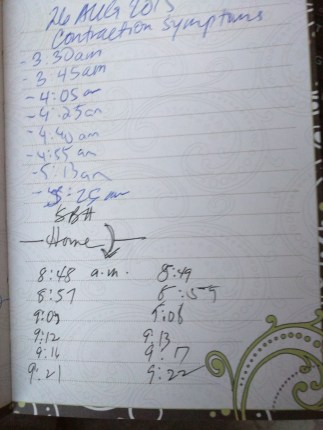 26 AUG 2013
Contraction Symptoms
- 3:30am
- 3:45am
- 4:05am
- 4:25am
- 4:40am
- 4:55am
- 5:13am
- 5:25am
SBH
Home
8:48 a.m. 8:49
8:57
9:09 9:08
9:12 9:13
9:16 9:17
9:21 9:22